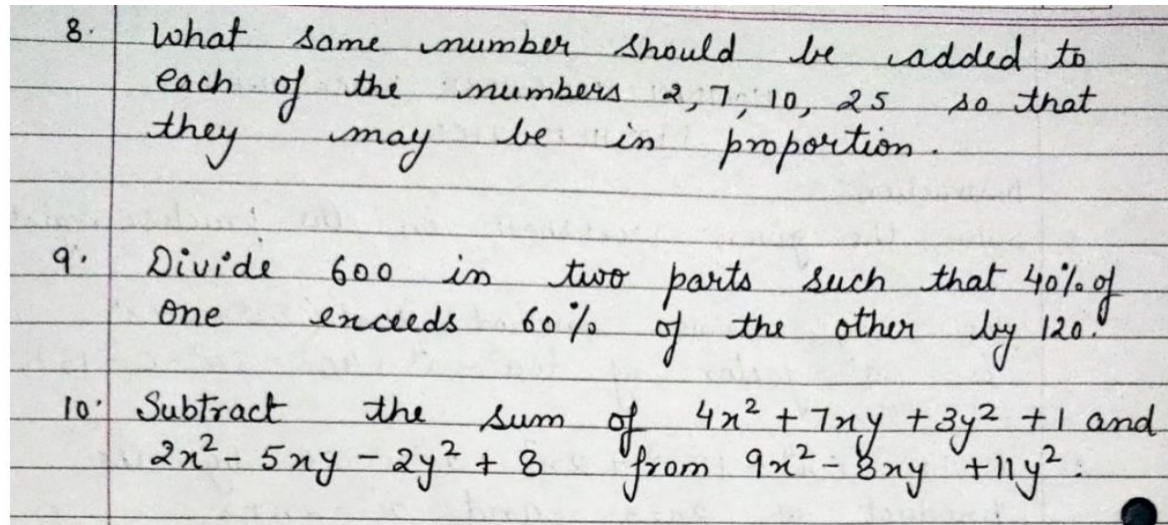 8. What same number should be added to
each of the numbers 2, 7, 10, 25 so that
they may be in proportion.
9. Divide 600 in two parts such that 40% of
one exceeds 60% of the other by 120.
10. Subtract the sum of 4x² + 7xy + 3y² + 1 and
2x² - 5xy - 2y² + 8 from 9x² - 8xy + 11y².